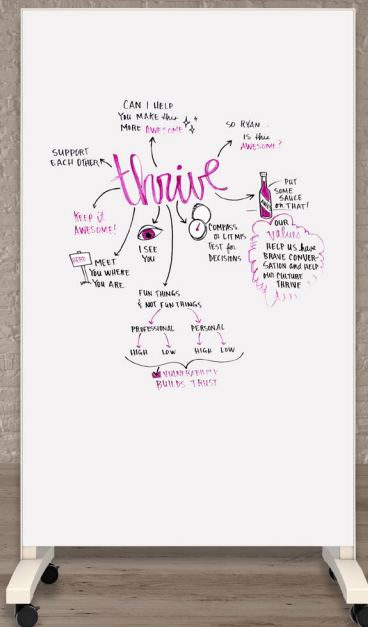 CAN I HELP
YOU MAKE this
MORE AWESOME
SO RYAN..
IS this
AWESOME?
SUPPORT
EACH OTHER
thrive
PUT
SOME
SAUCE
ON THAT!
KEEP it
AWESOME!
HERE
MEET
YOU WHERE
YOU ARE
I SEE
YOU
COMPASS
OR LITMUS
TEST for
DECISIONS
OUR
values
HELP US have
BRAVE CONVER-
SATION and HELP
our CULTURE
THRIVE
FUN THINGS
& NOT FUN THINGS
PROFESSIONAL
PERSONAL
HIGH LOW
HIGH LOW
VULNERABILITY
BUILDS TRUST